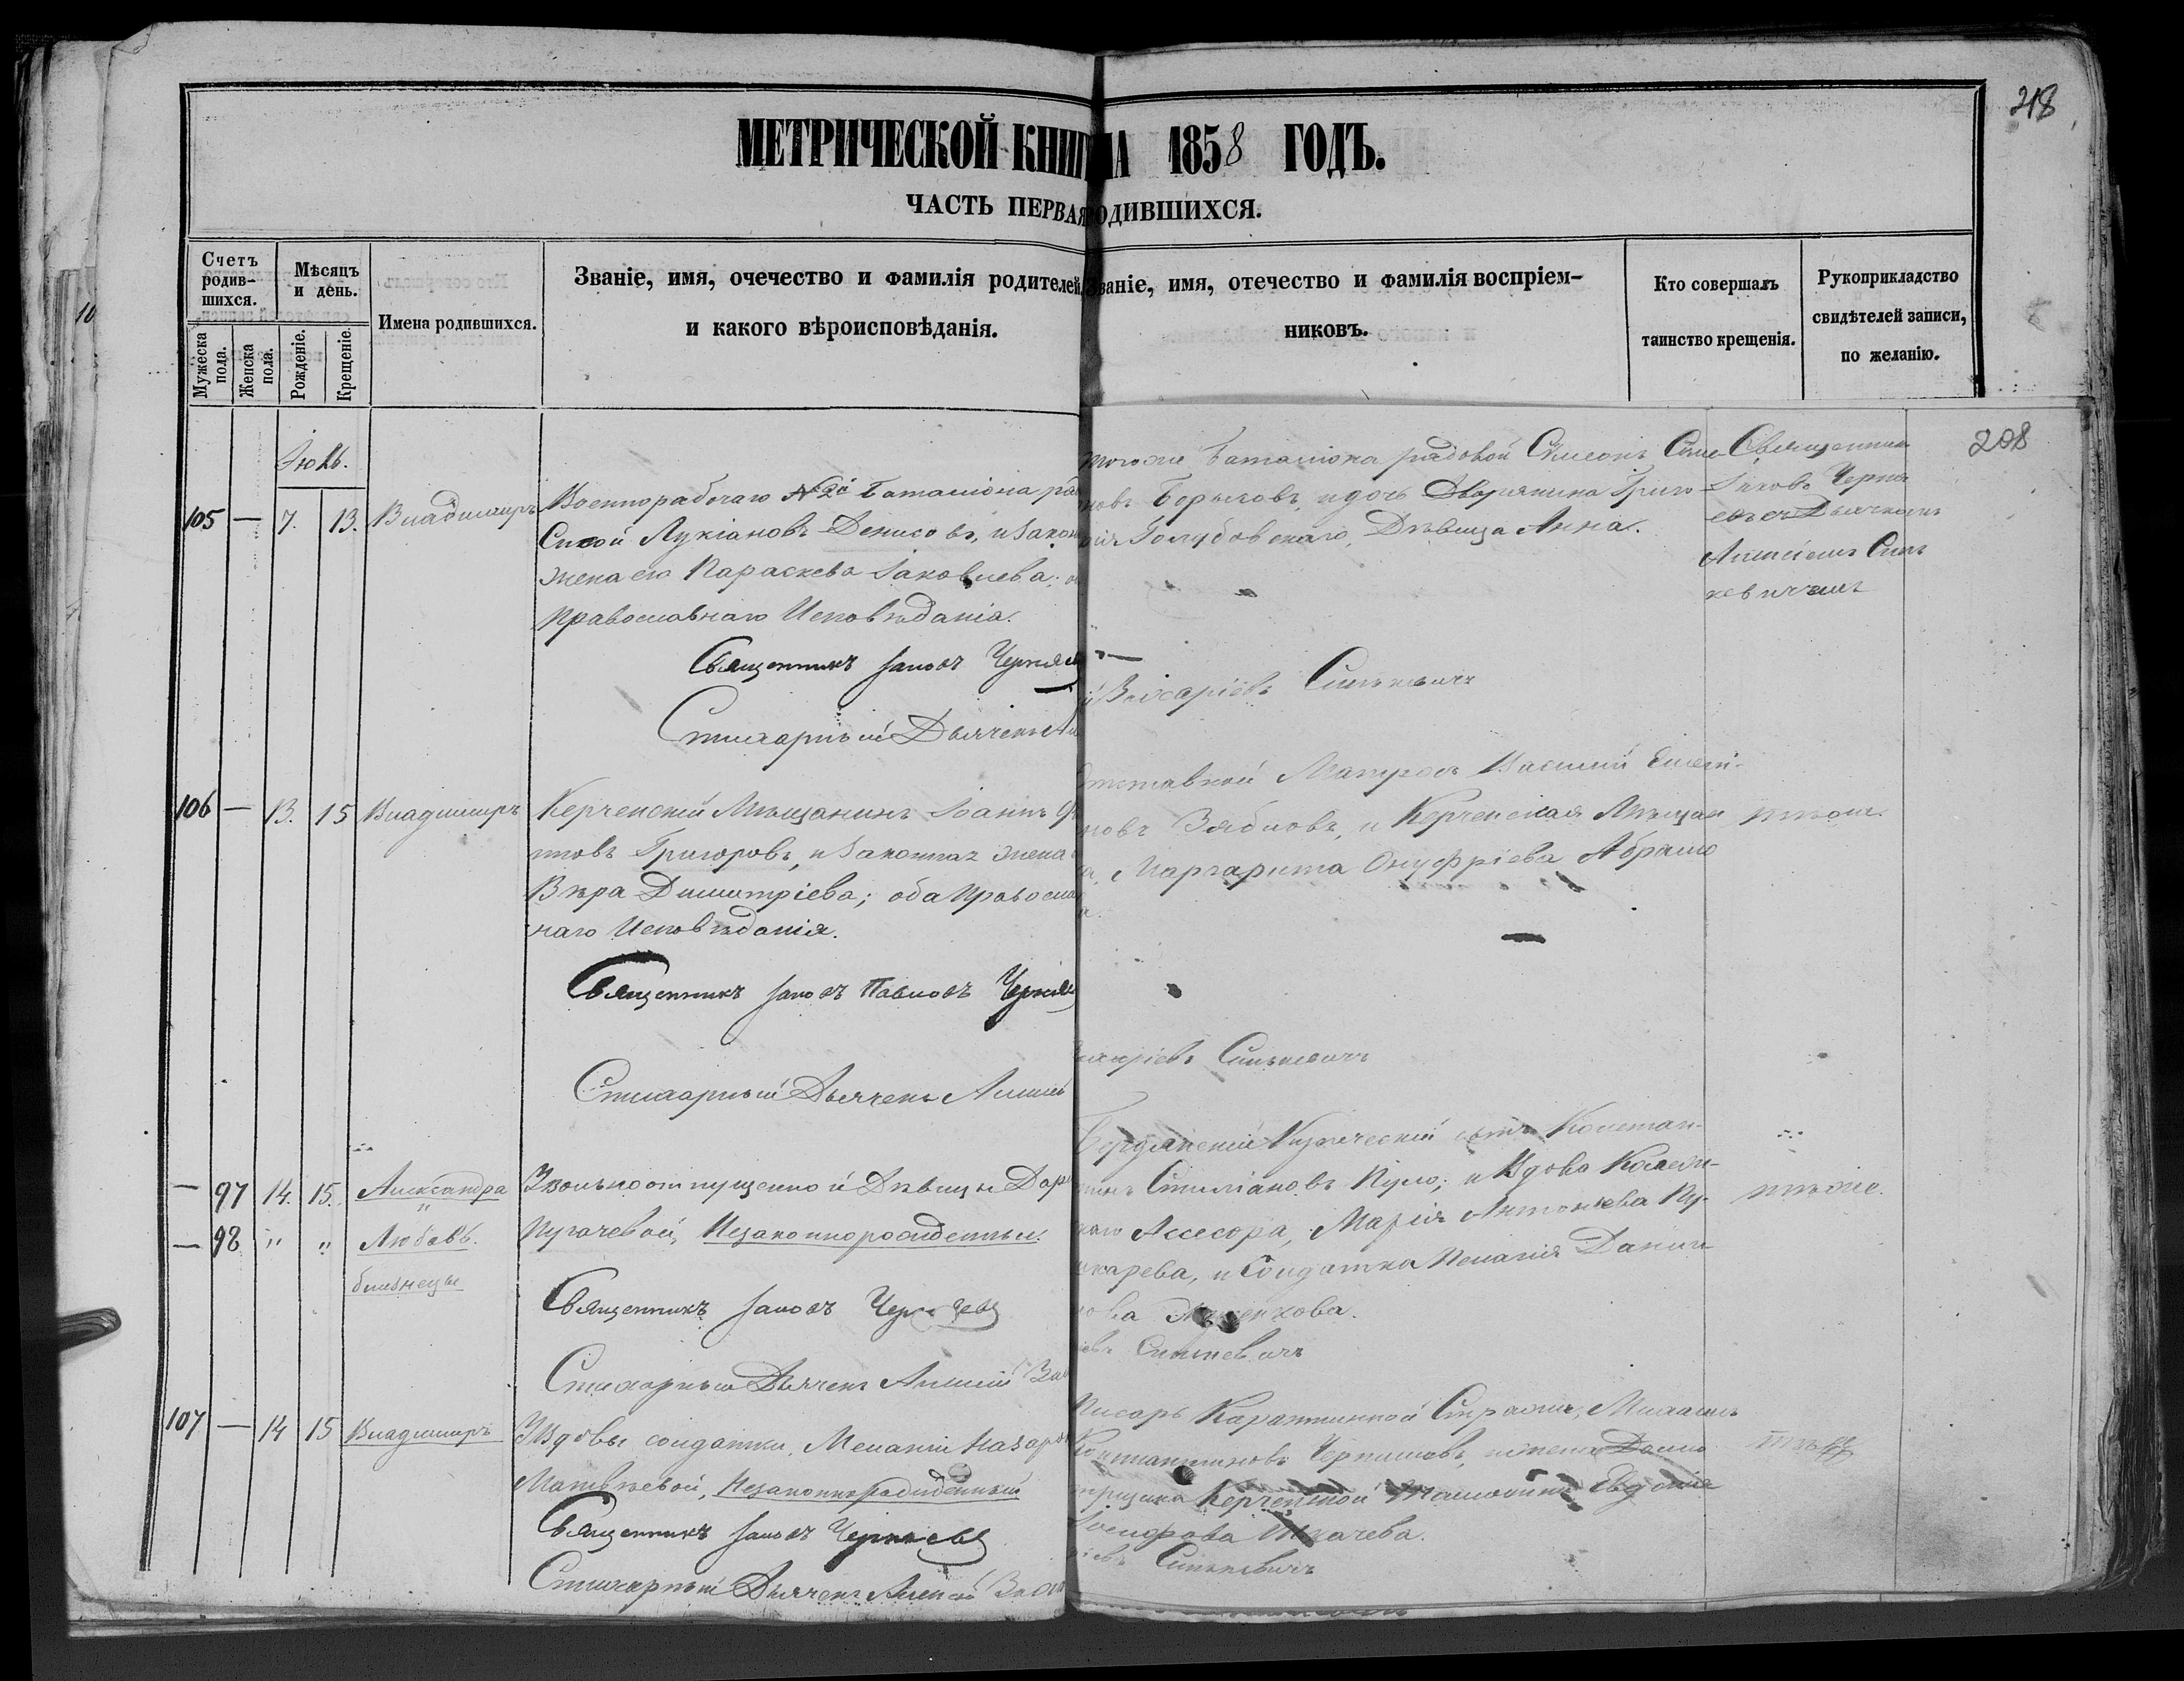 218
МЕТРИЧЕСКОЙ КНИГ НА 1858 ГОДЪ.
ЧАСТЬ ПЕРВАЯ РОДИВШИХСЯ.
Счетъ родив-шихся.
Мужеска пола.
Женска пола.
Мѣсяцъ и день.
Рожденіе.
Крещеніе.
Имена родившихся.
Званіе, имя, очечество и фамилія родителей,
и какого вѣроисповѣданія.
Званіе, имя, отечество и фамилія воспріем-
никовъ.
Кто совершалъ
таинство крещенія.
Рукоприкладство
свидѣтелей записи,
по желанію.
10
208
105 — 7. 13. Владимиръ
Военнорабочаго № 2й баталіона ря
Лукіановъ Денисовъ, и закон
жена его Параскева Іаковлева;
Православнаго Исповѣданія.
Священникъ Іаковъ Черняев
Стихарный Дьячекъ
тогоже баталіона рядовой Сѵмеонъ Симе
новъ и дочь Дворянина Григо
рія Голубовскаго, Дѣвица Анна.
Священник
Іаковъ Черня
евъ съ Дьячкомъ
Алексіемъ Синь
кевичемъ
Захаріевъ Синькевичъ
106 — 13. 15 Владимиръ
Керченскій Мѣщанинъ Іоаннъ
Григоровъ, и Законная жена
Вѣра Димитріева; оба Православ
наго Исповѣданія.
Священникъ Іаковъ Павловъ Черняев
Стихарный Дьячекъ Алексѣ
Отставной Матросъ Василій
новъ Зябловъ, и Керченская Мѣщан
а, Маргарита Онуфріева Абрамо
тѣже.
харіевъ Синькевичъ
— 97 14. 15. Александра
— 98 " " Любовь.
близнецы
У вольноотпущенной Дѣвицы Дар
Пугачевой, Незаконнорожденныя.
Священникъ Іаковъ Черняевъ
Стихарный Дьячекъ Алексій Зах
Бердянскій Купеческій сынъ Констан-
тинъ Стиліановъ и Вдова Коллеж-
скаго Ассесора, Марія Антоніева Пу-
карева, и Солдатка Пелагія Дании-
лова
тѣже.
евъ Синькевичъ
107 — 14 15 Владимиръ
У Вдовы солдатки, Меланіи Назаро
Матвѣевой, Незаконнорожденный
Священникъ Іаковъ Черняевъ
Стихарный Дьячекъ Алексій Заха
Писарь Карантинной Стражи, Михаилъ
Константиновъ и жена
Керченской Таможни Евдокія
Іосифова Ткачева.
ріевъ Синькевичъ